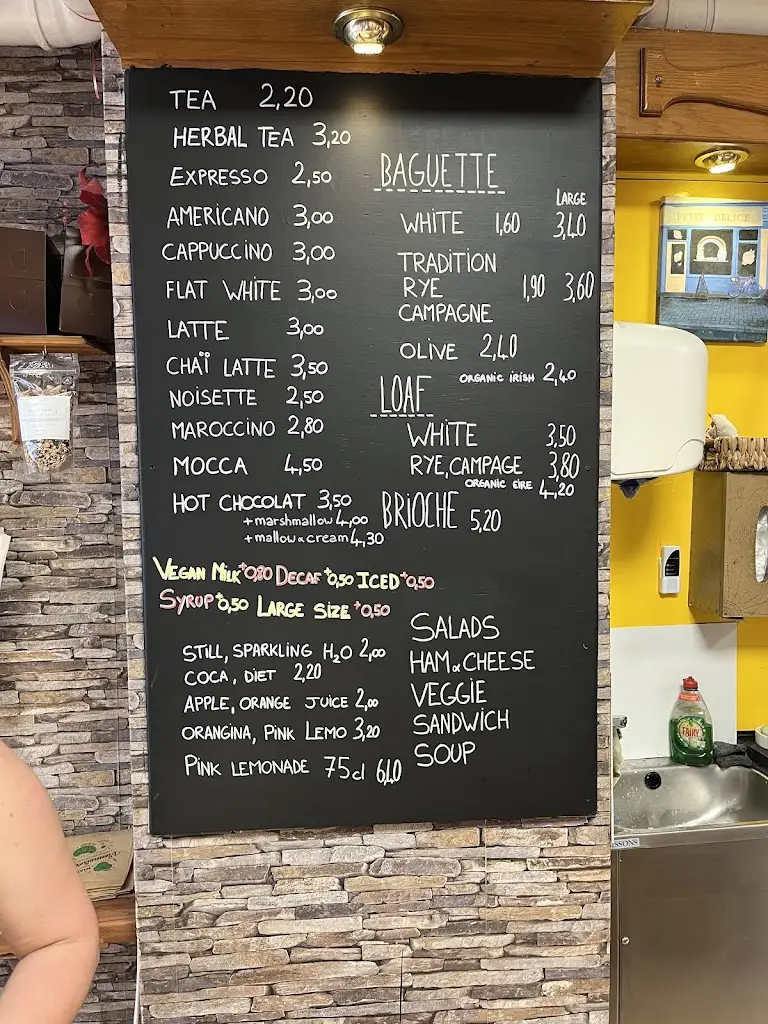 TEA 2,20
HERBAL TEA 3,20
EXPRESSO 2,50
AMERICANO 3,00
CAPPUCCINO 3,00
FLAT WHITE 3,00
LATTE 3,00
CHAÏ LATTE 3,50
NOISETTE 2,50
MAROCCINO 2,80
MOCCA 4,50
HOT CHOCOLAT 3,50
+marshmallow 4,00
+mallow & cream 4,30
BAGUETTE
LARGE
WHITE 1,60 3,40
TRADITION
RYE 1,90 3,60
CAMPAGNE
OLIVE 2,40
ORGANIC IRISH 2,40
LOAF
WHITE 3,50
RYE, CAMPAGE 3,80
ORGANIC EIRE 4,20
BRIOCHE 5,20
VEGAN MILK +0,80 DECAF +0,50 ICED +0,50
SYRUP +0,50 LARGE SIZE +0,50
STILL, SPARKLING H₂O 2,00
COCA, DIET 2,20
APPLE, ORANGE JUICE 2,00
ORANGINA, PINK LEMO 3,20
PINK LEMONADE 75cl 6,40
SALADS
HAM & CHEESE
VEGGIE
SANDWICH
SOUP
PETIT DELICE
FAIRY